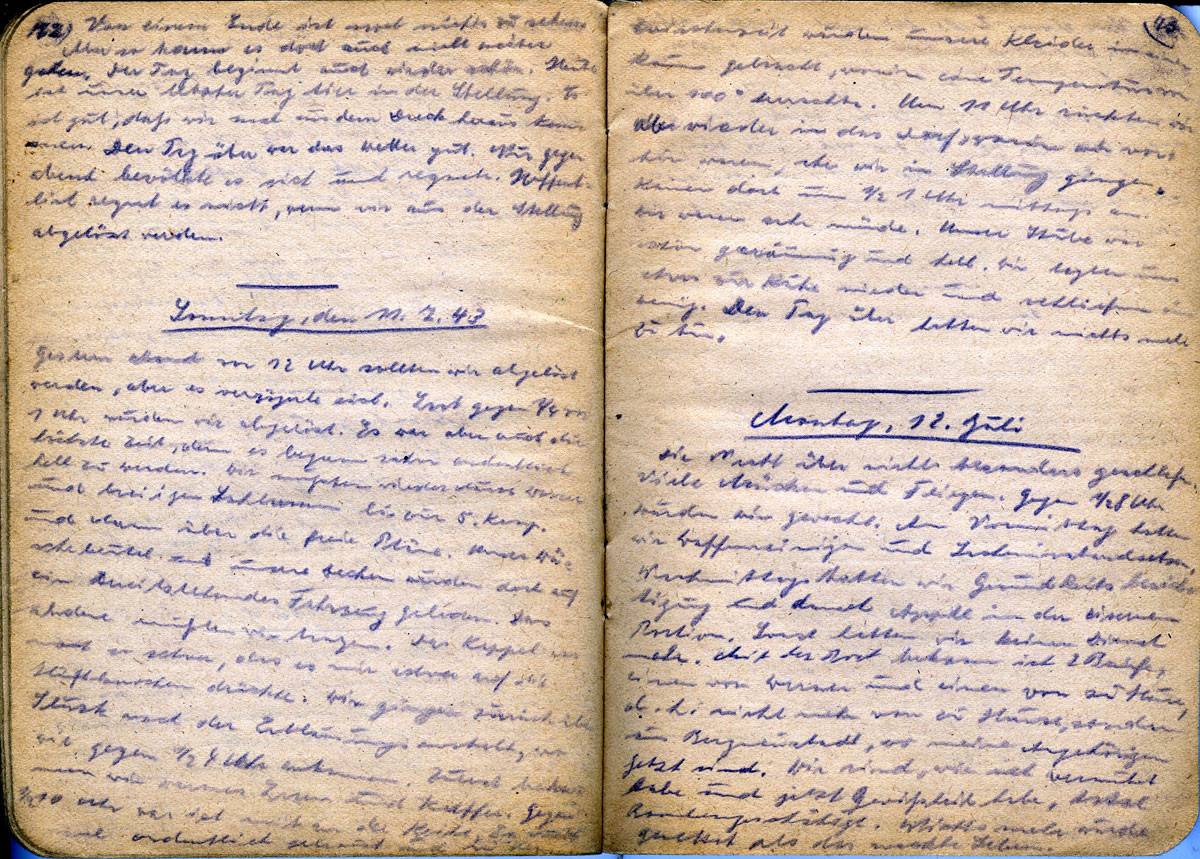 42) Von einem Ende ist noch nichts zu sehen.
Aber so kann es doch auch nicht weiter
gehen. Der Tag beginnt auch wieder schön. Heute
ist unser letzter Tag hier in der Stellung. Es
ist gut, daß wir mal aus dem Dreck heraus kom
men. Den Tag über war das Wetter gut. Nur gegen
abend bewölkte es sich und regnete. Hoffent-
lich regnet es nicht, wenn wir aus der Stellung
abgelöst werden.
Sonntag, den 11. 7. 43
Gestern abend vor 12 Uhr sollten wir abgelöst
werden, aber es verzögerte sich. Erst gegen
1 Uhr wurden wir abgelöst. Es war aber auch die
höchste Zeit, denn es begann schon ordentlich
hell zu werden. Wir mußten wieder durch Wasser
und breiigen Schlamm bis zur 5. Komp.
und dann über die freie Pläne. Unser Wä-
schebeutel und unsere Decken wurden dort auf
ein bereitstehendes Fahrzeug geladen. Das
andere mußten wir tragen. Das Koppel war
noch so schwer, das es mir schwer auf die
Hüftknochen drückte. Wir gingen zurück über
Stück nach der Entlausungsanstalt, wo
wir gegen 1/2 4 Uhr ankamen. Zuerst beka
men wir warmes Essen und Kaffee. Gegen
1/2 10 Uhr war ich mit an der Reihe.
ordentlich
43
wurden unsere Kleider in einen
Raum gebracht, worin eine Temperatur von
über 100° herrschte. Um 11 Uhr rückten wir
wieder in das Dorf, worin wir vor
her waren, ehe wir in Stellung gingen.
Kamen dort um 1/2 1 Uhr mittags an.
Wir waren sehr müde. Unsere Stube war
schön geräumig und hell. Wir legten uns
etwas zur Ruhe nieder und schliefen ein
wenig. Den Tag über hatten wir nichts mehr
zu tun.
Montag, 12. Juli
Die Nacht über nichts besonders geschlafen.
Viele Mücken und Fliegen. Gegen 1/2 8 Uhr
wurden wir geweckt. Am Vormittag hatten
wir Waffenreinigen und Sacheninstandsetzen.
Nachmittags hatten wir Gesundheitsbesich
tigung und danach Appell in der eisernen
Portion. Sonst hatten wir keinen Dienst
mehr. Mit der Post bekam ich 2 Briefe,
einen von Werner und einen von zu Hause,
d. h. nicht mehr von zu Hause, sondern
aus Bergneustadt, wo meine Angehörigen
jetzt sind. Wir sind, wie ich vermutet
habe und jetzt Gewißheit habe, total
Bombengeschädigt. Nichts mehr wurde
gerettet als das nackte Leben.